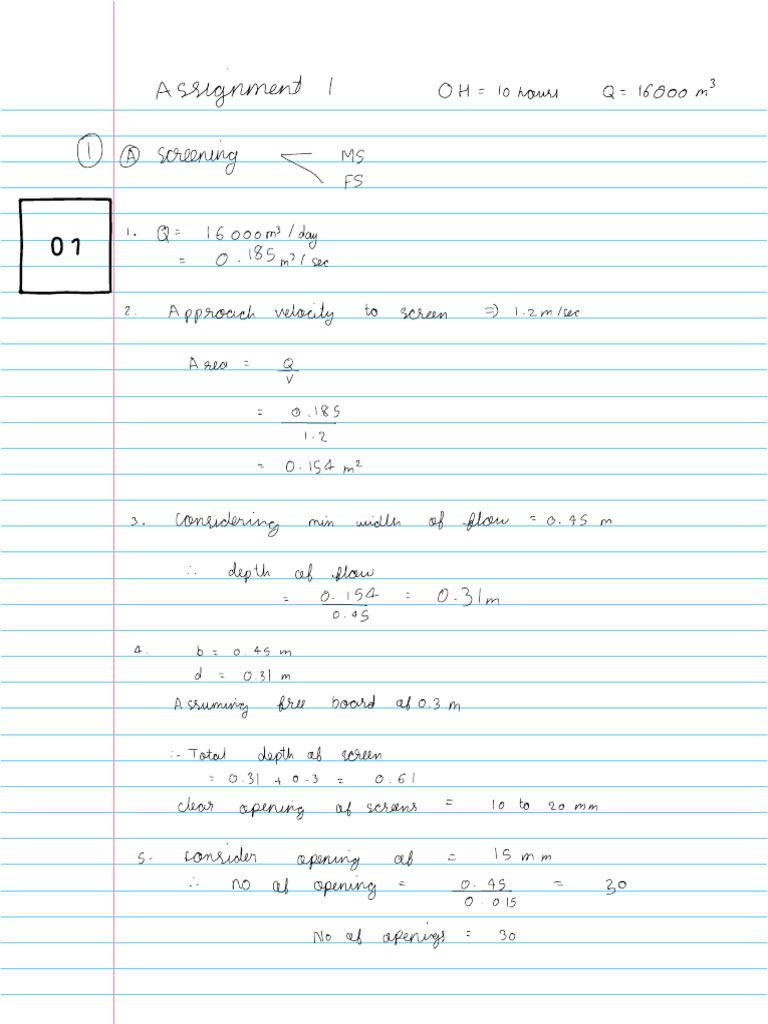 Assignment 1 OH = 10 hours Q = 16000 m³
1 A screening MS
FS
01
1. Q = 16000 m³/day
= 0.185 m³/sec
2. Approach velocity to screen ⇒ 1.2 m/sec
Area = Q
V
= 0.185
1.2
= 0.154 m²
3. Considering min width of flow = 0.45 m
∴ depth of flow
= 0.154 = 0.31 m
0.45
4. b = 0.45 m
d = 0.31 m
Assuming free board of 0.3 m
∴ Total depth of screen
= 0.31 + 0.3 = 0.61
clear opening of screens = 10 to 20 mm
5. consider opening of = 15 mm
∴ no of opening = 0.45 = 30
0.015
No of openigs = 30